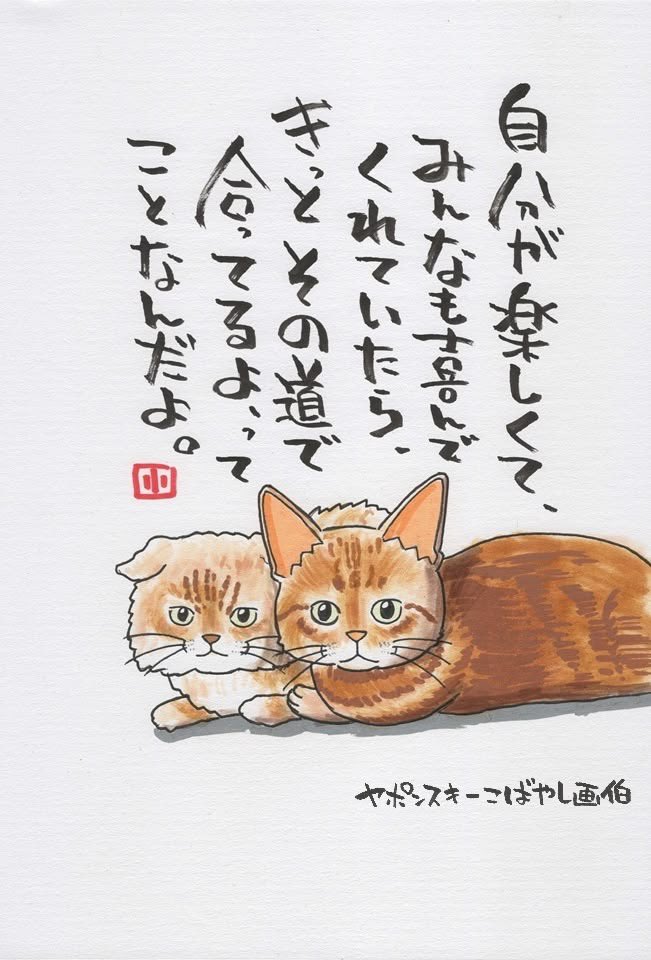 自分が楽しくて、
みんなも喜んで
くれていたら、
きっとその道で
合ってるよ、って
ことなんだよ。
小
ヤポンスキーこばやし画伯